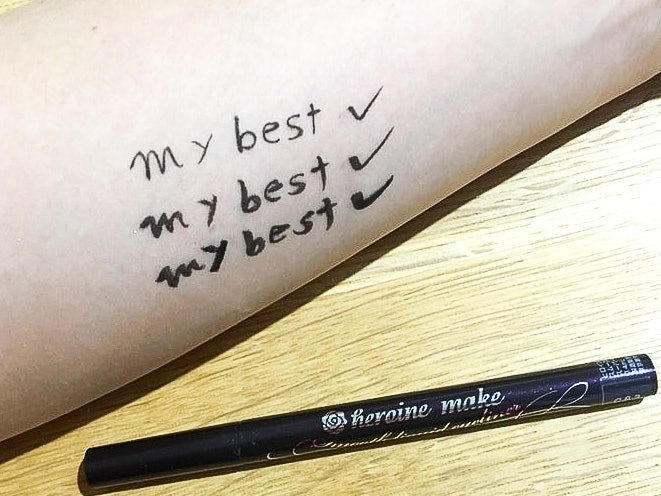 my best ✓
my best ✓
my best ✓
heroine make
Smooth liquid eyeliner